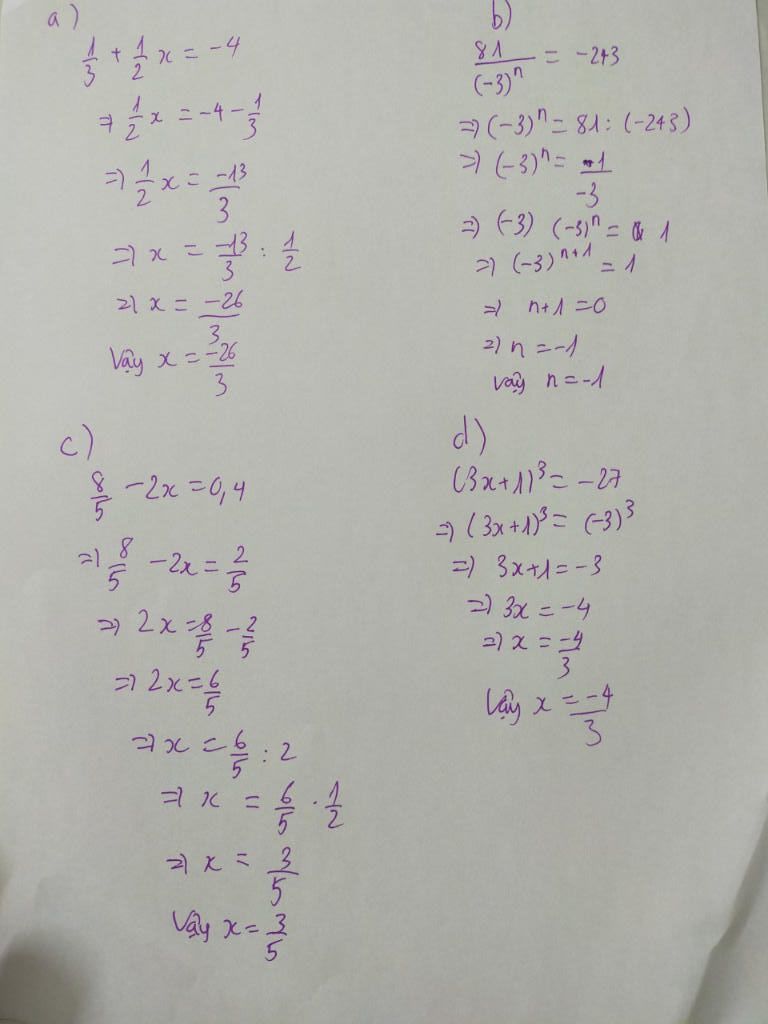 a)
1/3 + 1/2 x = -4
=> 1/2 x = -4 - 1/3
=> 1/2 x = -13/3
=> x = -13/3 : 1/2
=> x = -26/3
Vậy x = -26/3
b)
81/(-3)^n = -243
=> (-3)^n = 81 : (-243)
=> (-3)^n = 1/-3
=> (-3) (-3)^n = 1
=> (-3)^{n+1} = 1
=> n+1 = 0
=> n = -1
Vậy n = -1
c)
8/5 - 2x = 0,4
=> 8/5 - 2x = 2/5
=> 2x = 8/5 - 2/5
=> 2x = 6/5
=> x = 6/5 : 2
=> x = 6/5 . 1/2
=> x = 3/5
Vậy x = 3/5
d)
(3x+1)^3 = -27
=> (3x+1)^3 = (-3)^3
=> 3x+1 = -3
=> 3x = -4
=> x = -4/3
Vậy x = -4/3